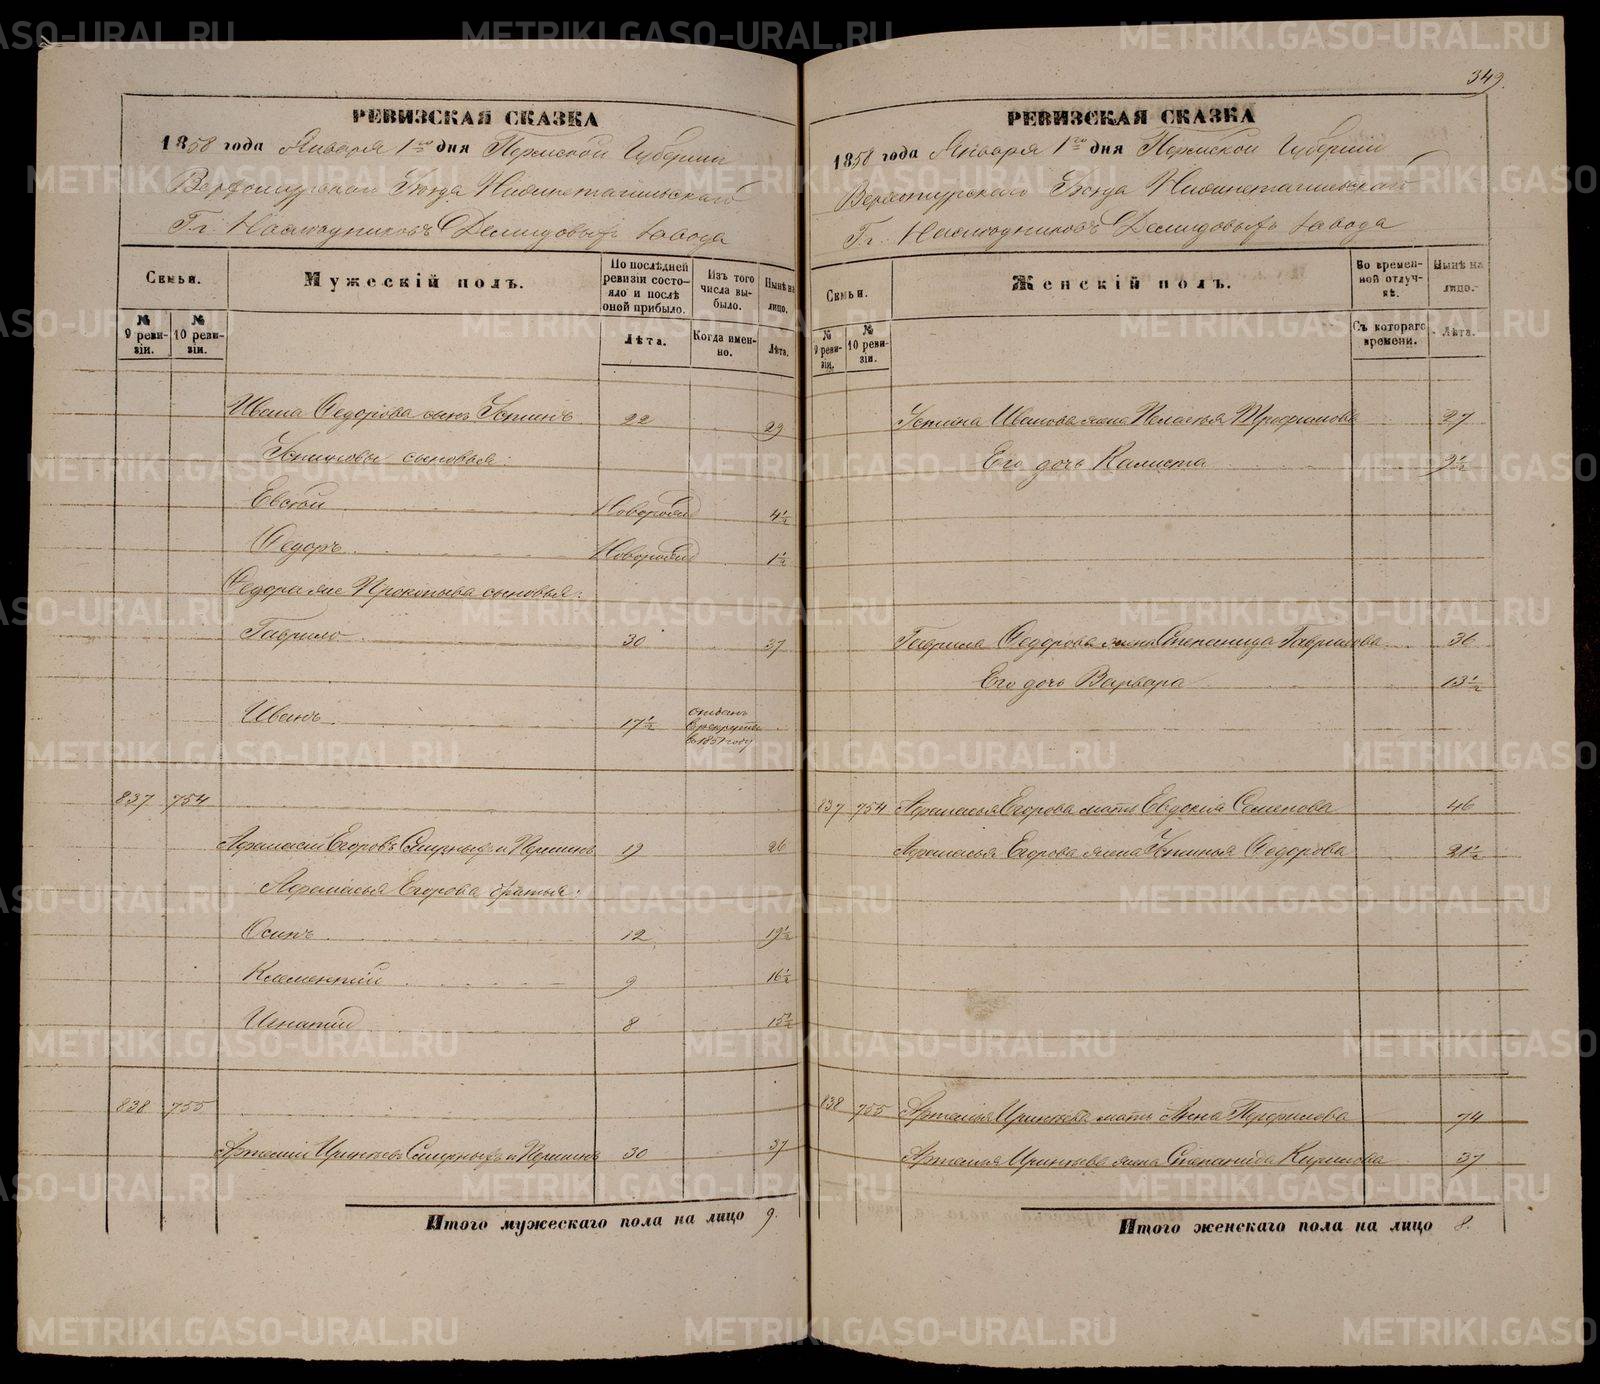 РЕВИЗСКАЯ СКАЗКА
1858 года Января 1го дня Пермской Губернии
Верхотурскаго Уезда Нижнетагильскаго
Гг. Наследниковъ Демидовыхъ завода
Семьи.
Мужескій полъ.
По последней ревизіи состояло и после оной прибыло.
Изъ того числа выбыло.
Ныне на лицо.
№ 9 ревизіи.
№ 10 ревизіи.
Лета.
Когда именно.
Лета.
Ивана Федорова сынъ Устинъ 22 29
Устиновы сыновья:
Евстфій Новорожд 4½
Федоръ Новорожд 1½
Федора же Прокопьева сыновья:
Гаврило 30 37
Иванъ 17½ отданъ в рекруты в 1851 году
837 754
Афанасій Егоровъ Смирныхъ и Першинъ 19 26
Афанасья Егорова братья:
Осипъ 12 19½
Клементій 9 16½
Игнатій 8 15½
838 755
Артемій Смирныхъ и Першинъ 30 37
Итого мужескаго пола на лицо 9.
349.
РЕВИЗСКАЯ СКАЗКА
1858 года Января 1го дня Пермской Губерніи
Верхотурскаго Уезда Нижнетагильскаго
Гг. Наследниковъ Демидовыхъ завода
Семьи.
Женскій полъ.
Во временной отлучке.
Ныне на лицо.
№ 9 ревизіи.
№ 10 ревизіи.
Съ котораго времени.
Лета.
Устина Иванова жена Пелагья Трофимова 27
Его дочь Калиста 9½
Гаврила Федорова жена Степанида Гаврилова 36
Его дочь Варвара 13½
837 754 Афанасья Егорова мать Евдокія Семенова 46
Афанасья Егорова жена Устинья Федорова 21½
838 755 Артемья мать Анна 74
Артемья жена Степанида Кирилова 37
Итого женскаго пола на лицо 8.
METRIKI.GASO-URAL.RU